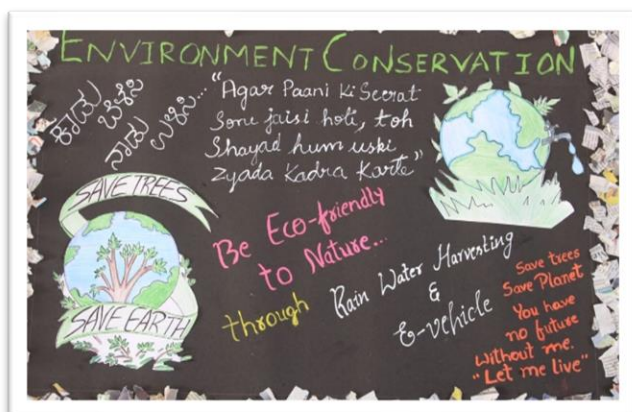 ENVIRONMENT CONSERVATION
ಕಾಡು ಬೆಳೆಸಿ
ನಾಡು ಉಳಿಸಿ...
"Agar Paani Ki Seerat
Sone jaisi hoti, toh
Shayad hum uski
Zyada Kadra Karte"
SAVE TREES
SAVE EARTH
Be Eco-friendly
to Nature...
through Rain Water Harvesting
&
E-vehicle
Save trees
Save Planet
You have
no future
without me.
"Let me live"